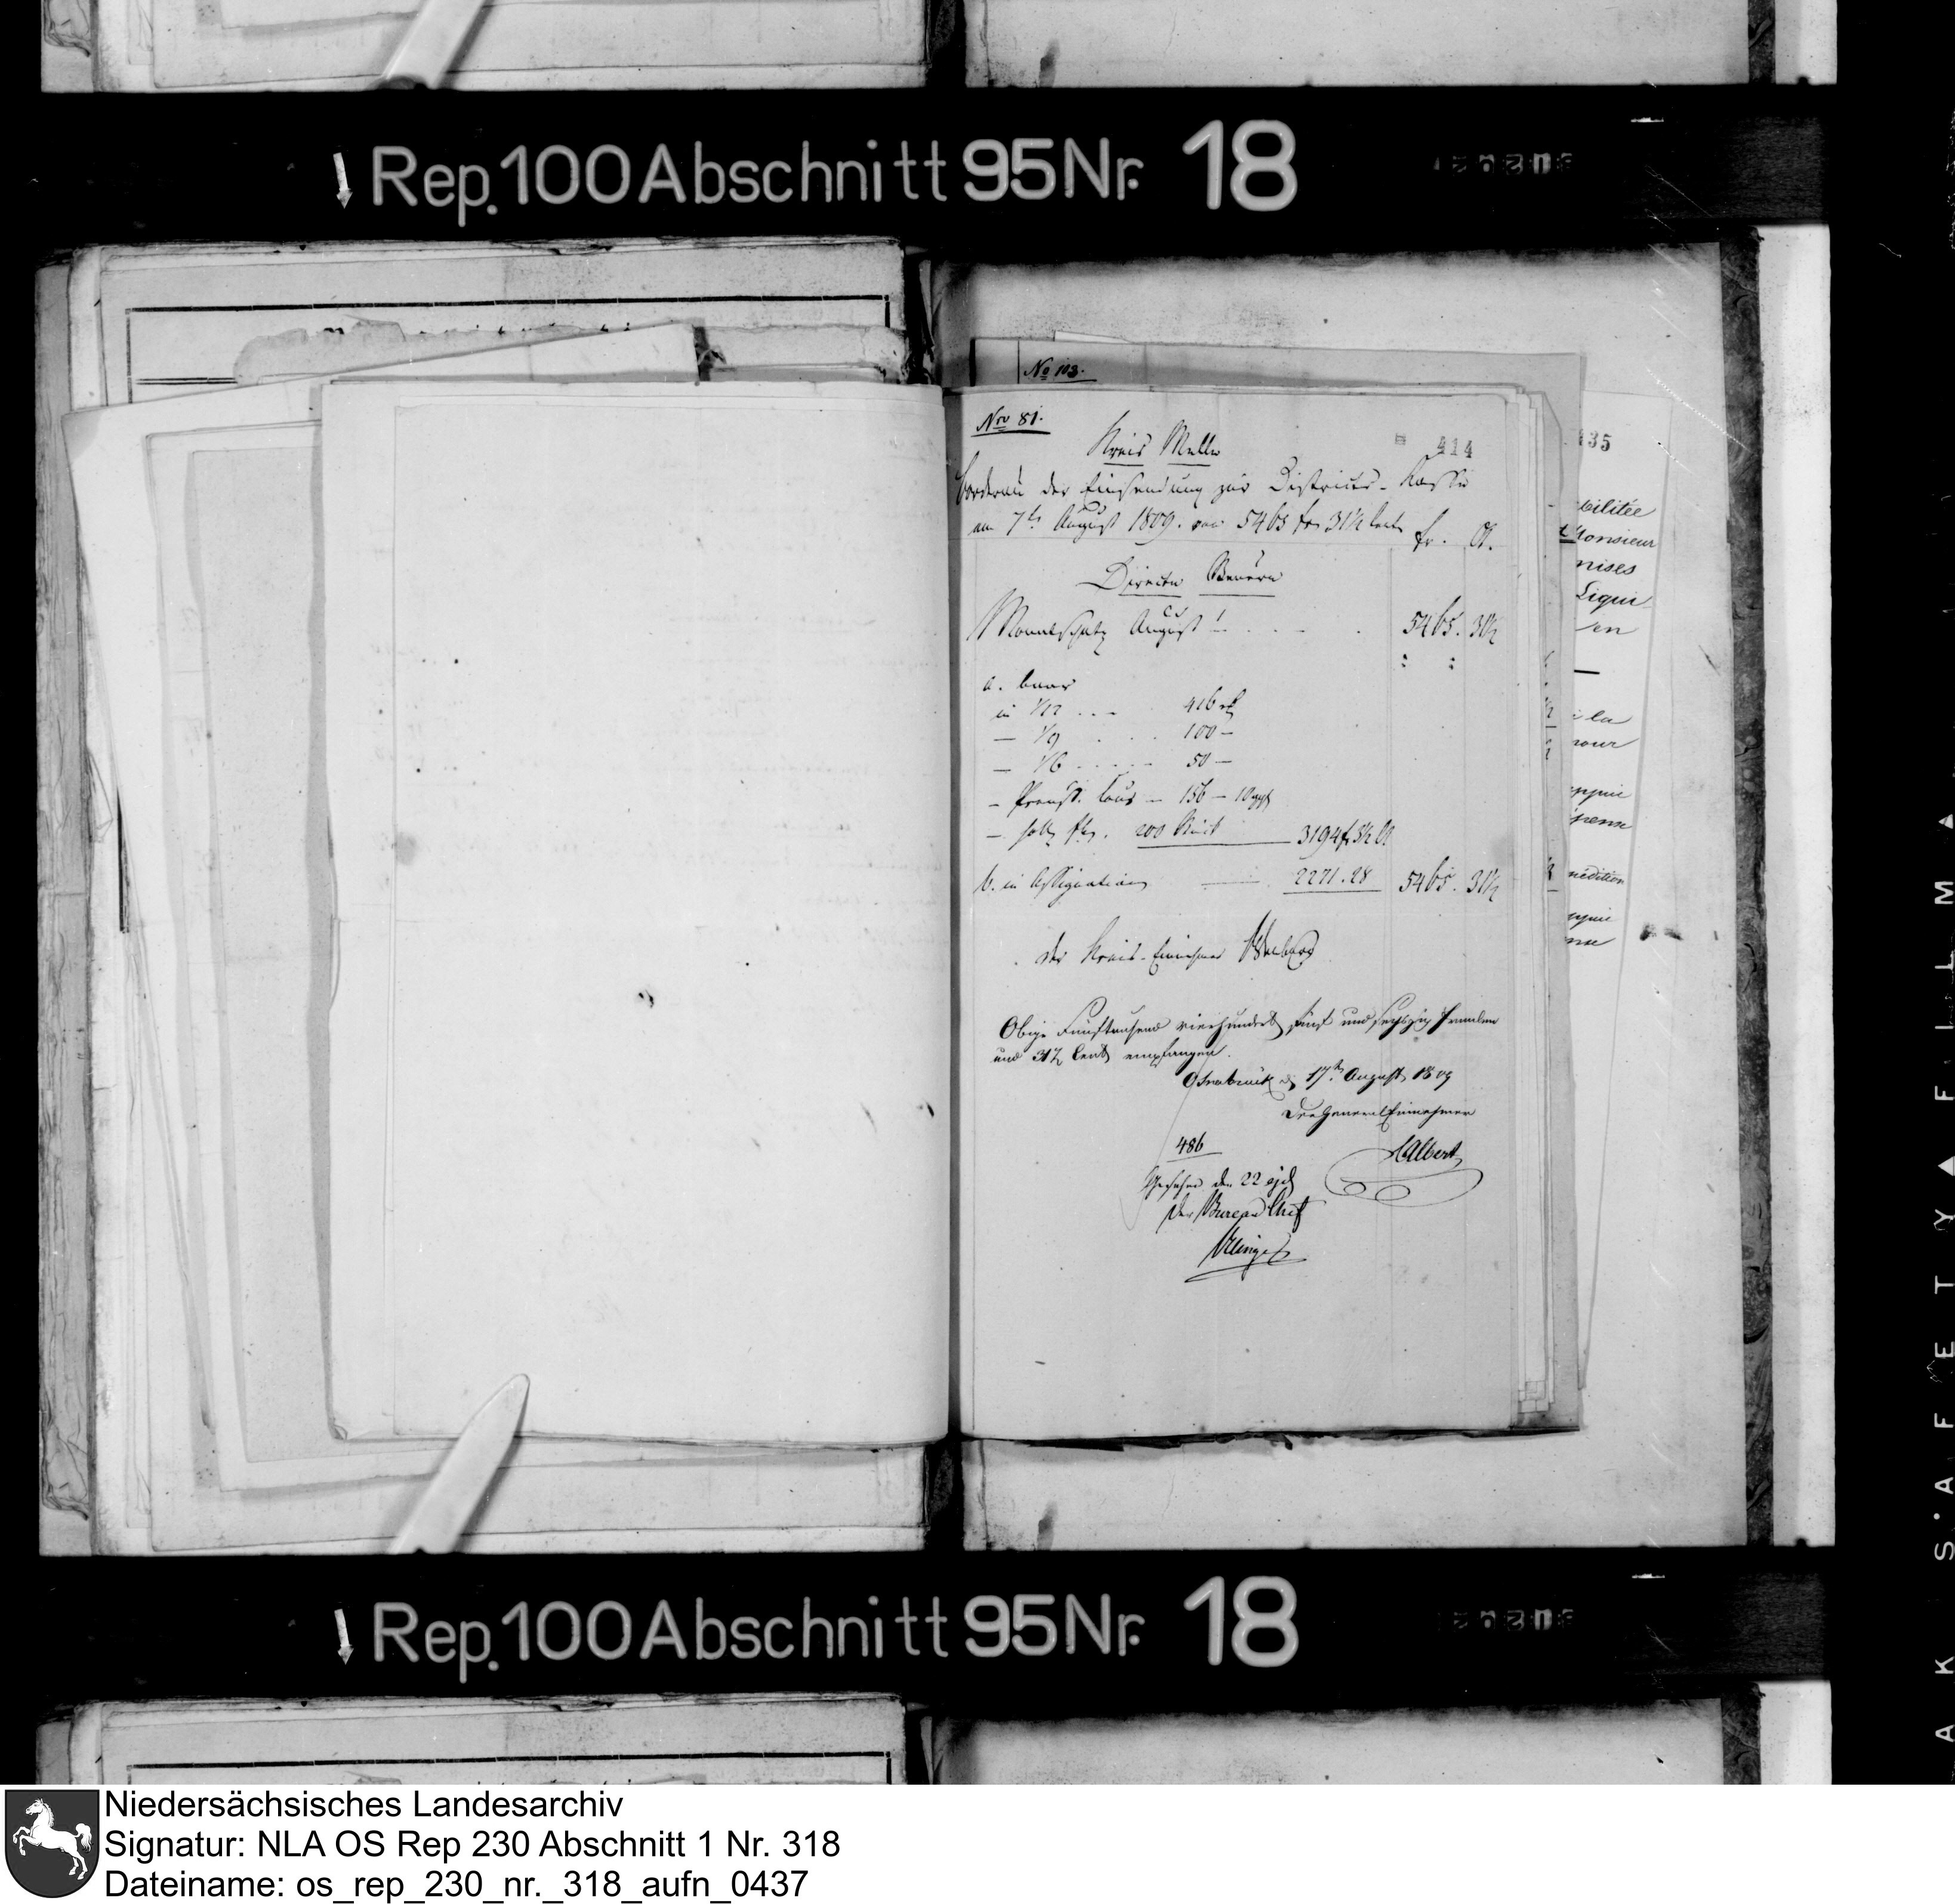 Rep. 100 Abschnitt 95 Nr. 18
No 113.
Nro 81.
414
Kreis Melle
Bordereau der Einsendung zur Districts-Kasse
am 7ts August 1809. von 5465 frs 31½ Cent
fr. Ct.
Directe Steuern
Monatschatz August 5465. 31½
a. baar
in 1/12 416 rt
— 100 —
— 1/6 50 —
— 156 — 10 ggl
— 200 Stück 3194 fr 3½ Ct
b. in Assignation 2271.28 5465. 31½
der Kreis-Einnehmer
Obige Fünftausend vierhundert fünf und sechszig Franken
und 31½ Cent empfangen.
Osnabrück d 17t August 1809
Der General Einnehmer
486
Albert
Gesehen den 22 ejd
Der Bureau Chef
435
bilitée
Monsieur
mises
Liqui-
en
à la
pour
pense
Rep. 100 Abschnitt 95 Nr. 18
SAFETY FILM
Niedersächsisches Landesarchiv
Signatur: NLA OS Rep 230 Abschnitt 1 Nr. 318
Dateiname: os_rep_230_nr._318_aufn_0437